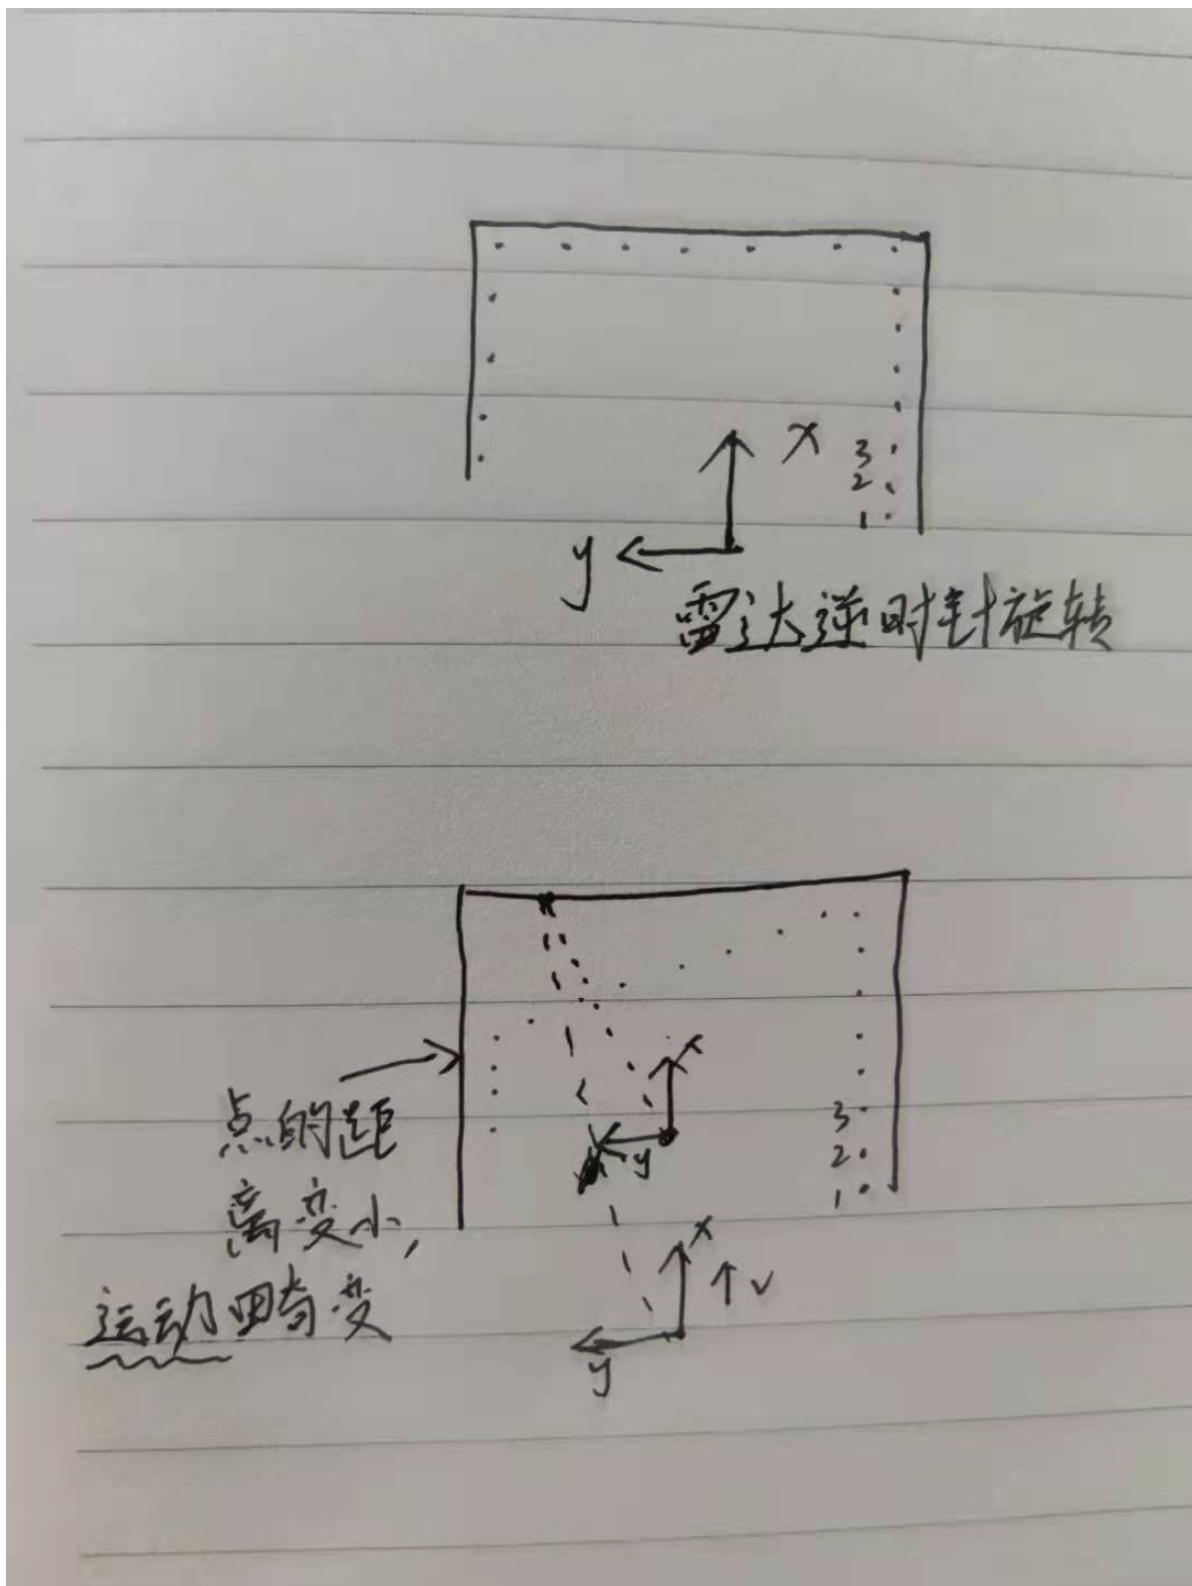 x
3
2
1
y
雷达逆时针旋转
x
y
点的距
离变小,
运动畸变
3
2
1
x
↑v
y